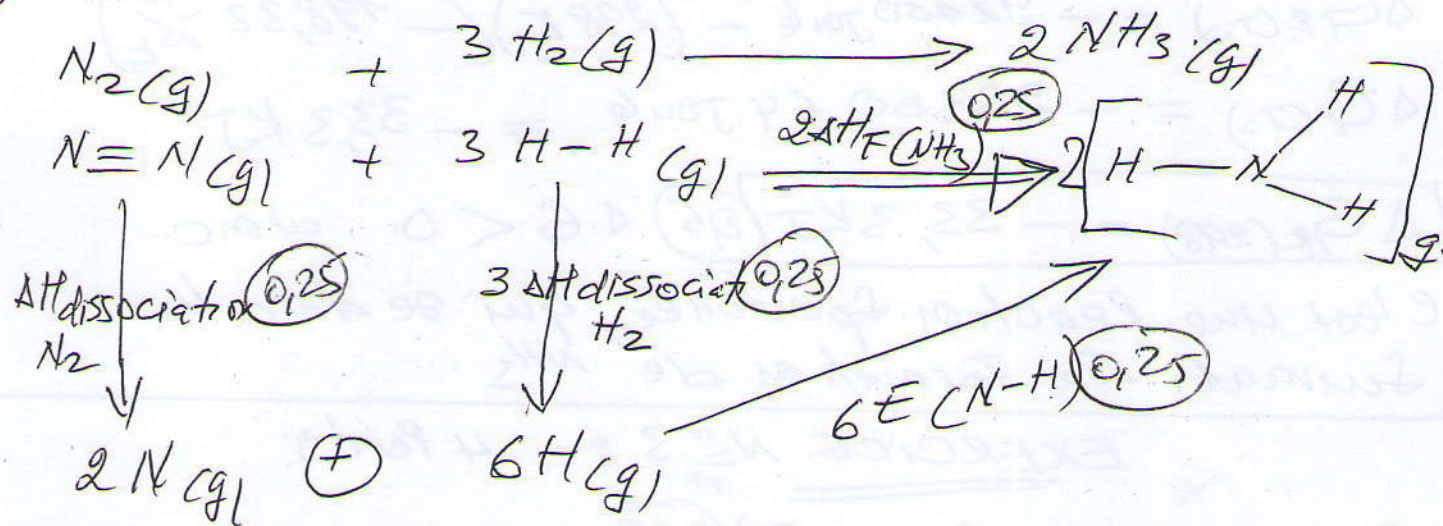 N2(g) + 3 H2(g) → 2 NH3(g)
N≡N(g) + 3 H-H(g) 2ΔHF(NH3) 0,25 2[H-N H H]g
ΔH dissociation 0,25 N2
3 ΔH dissociat 0,25 H2
6E(N-H) 0,25
2 N(g) + 6H(g)